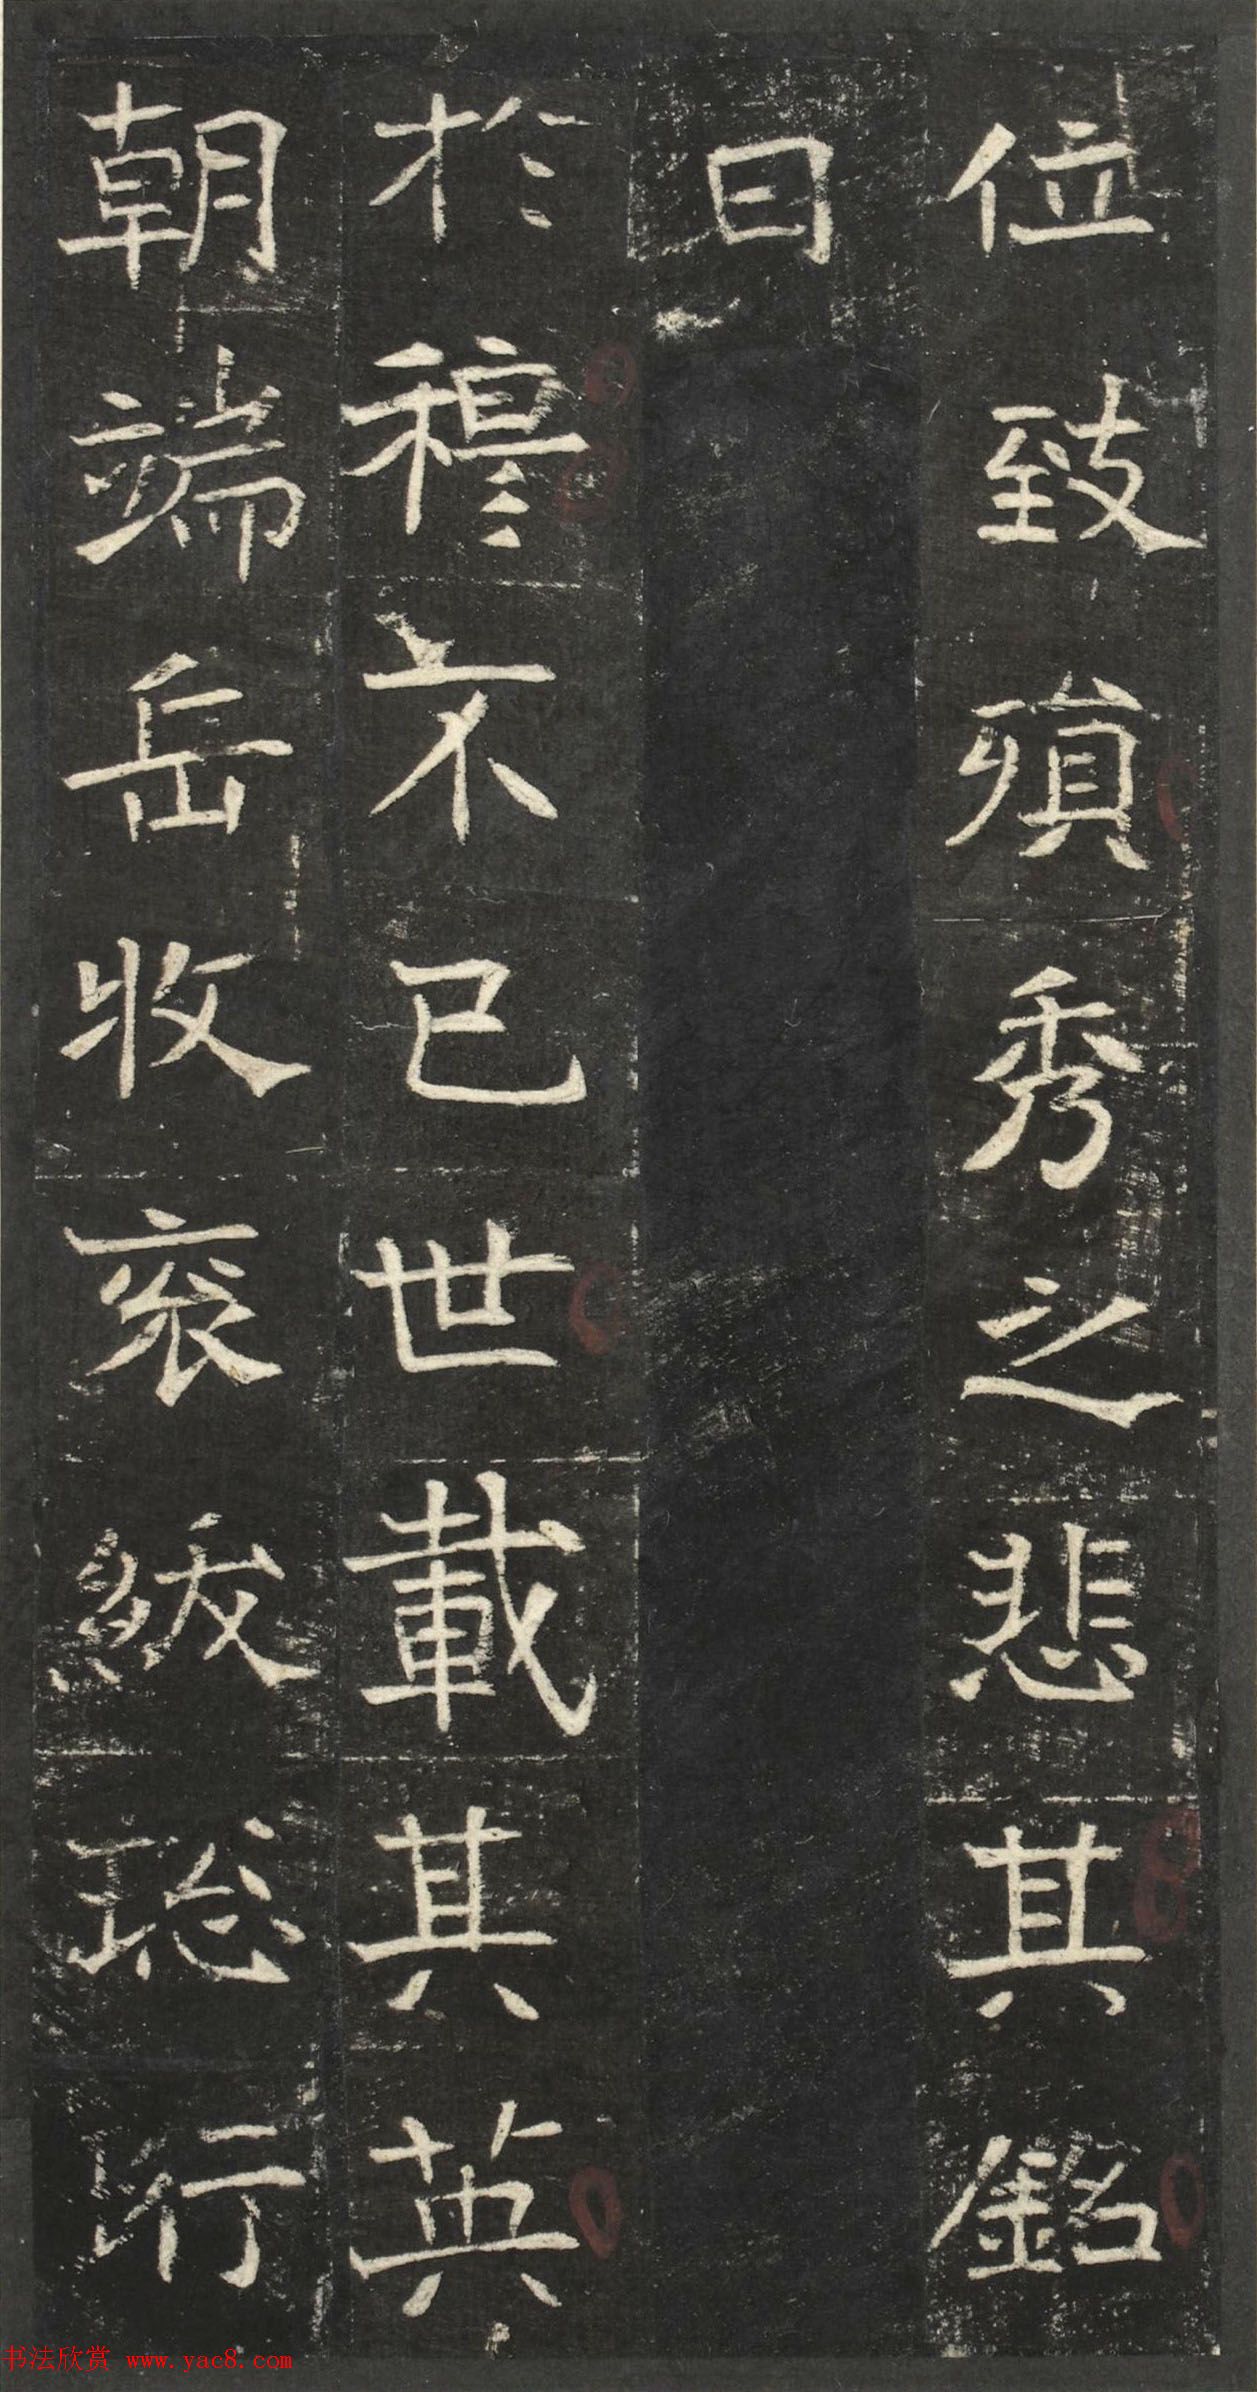 位致殞秀之悲其銘
曰
於穆不已世載其英
朝端岳收袞紱聡珩
书法欣赏 www.yac8.com